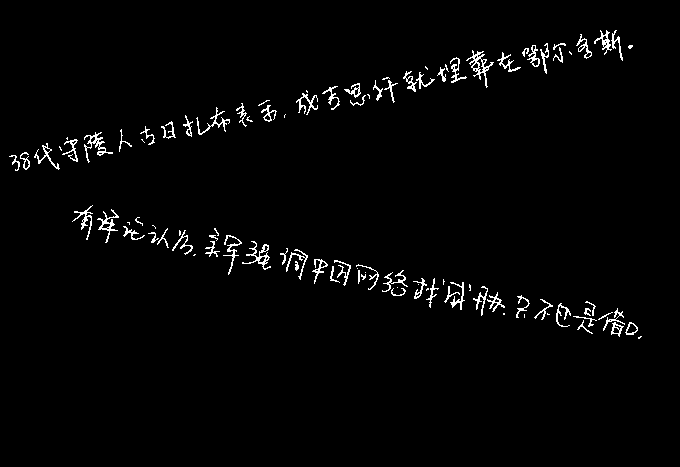 38代守陵人古日扎布表示,成吉思汗就埋葬在鄂尔多斯.
有评论认为,美军强调中国网络战威胁,只不过是借口.